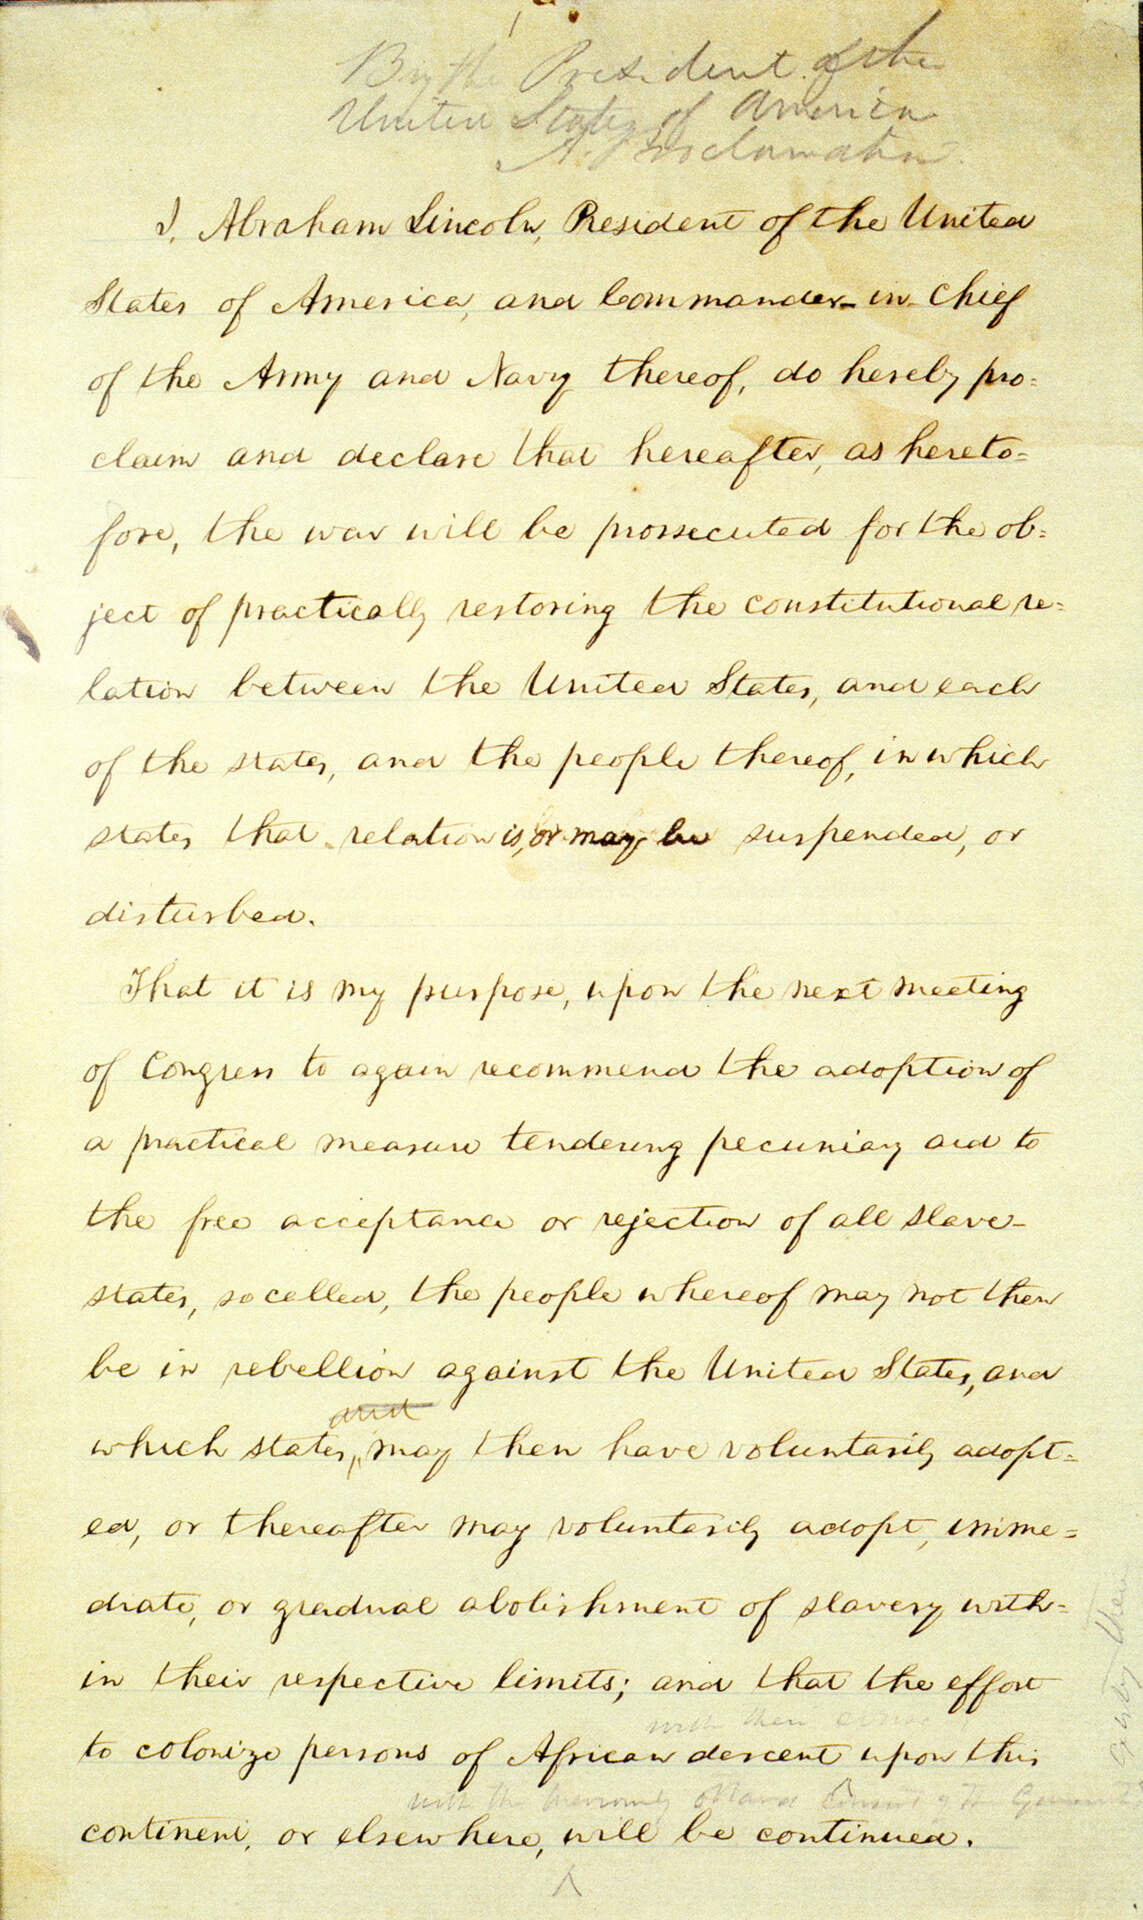 By the President of the
United States of America
A Proclamation.
I, Abraham Lincoln, President of the United
States of America, and Commander-in-Chief
of the Army and Navy thereof, do hereby pro=
claim and declare that hereafter, as hereto=
fore, the war will be prossecuted for the ob=
ject of practically restoring the constitutional re=
lation between the United States, and each
of the states, and the people thereof, in which
states that relation is, or may be suspended, or
disturbed.
That it is my purpose, upon the next meeting
of Congress to again recommend the adoption of
a practical measure tendering pecuniary aid to
the free acceptance or rejection of all slave-
states, so called, the people whereof may not then
be in rebellion against the United States, and
and
which states, may then have voluntarily adopt=
ed, or thereafter may voluntarily adopt, imme=
diate, or gradual abolishment of slavery with=
in their respective limits; and that the effort
with their consent
to colonize persons of African descent upon this
with the previously obtained consent of the Governments
continent, or elsewhere, will be continued.